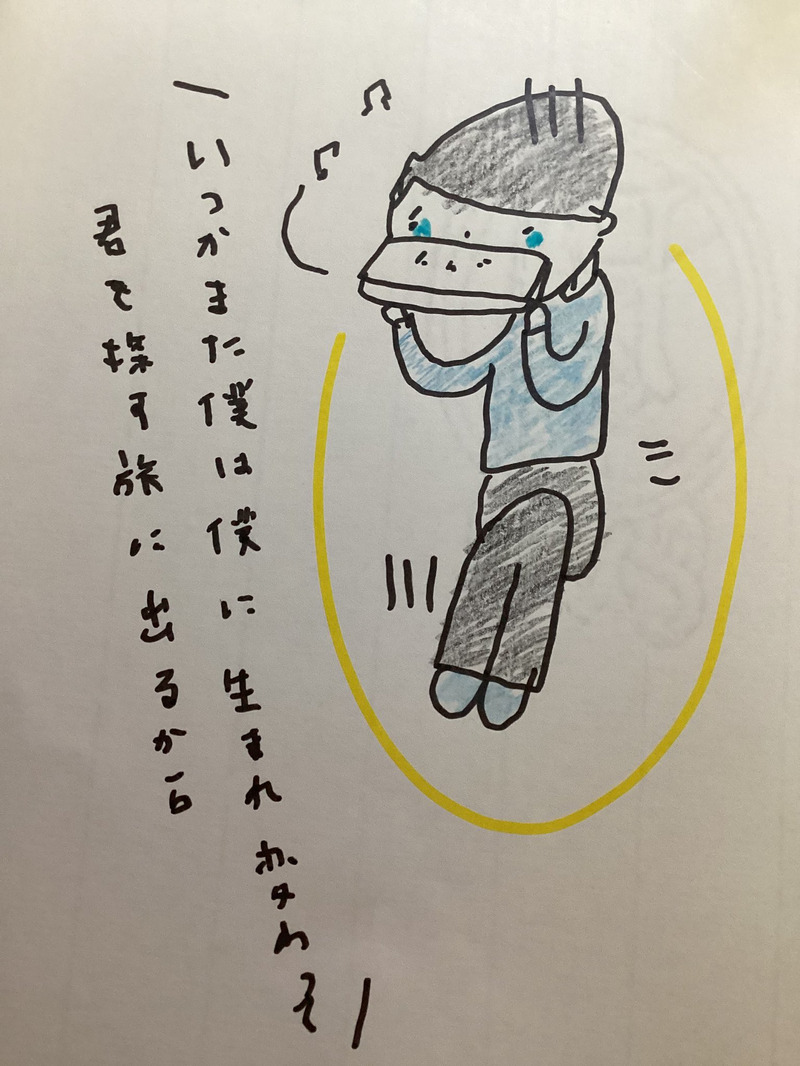 いつかまた僕は僕に生まれ変わろ
君を探す旅に出るから